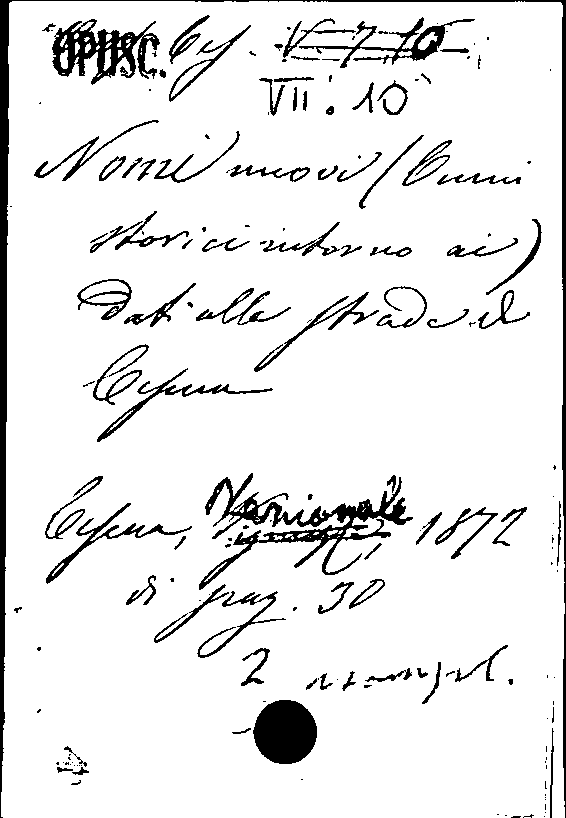 OPUSC. Ces. V. 7.10
VII. 10
Nomi nuovi (Cenni
storici intorno ai)
dati alle strade di
Cesena
Cesena, Nazionale, 1872
di pag. 30
2 esempl.